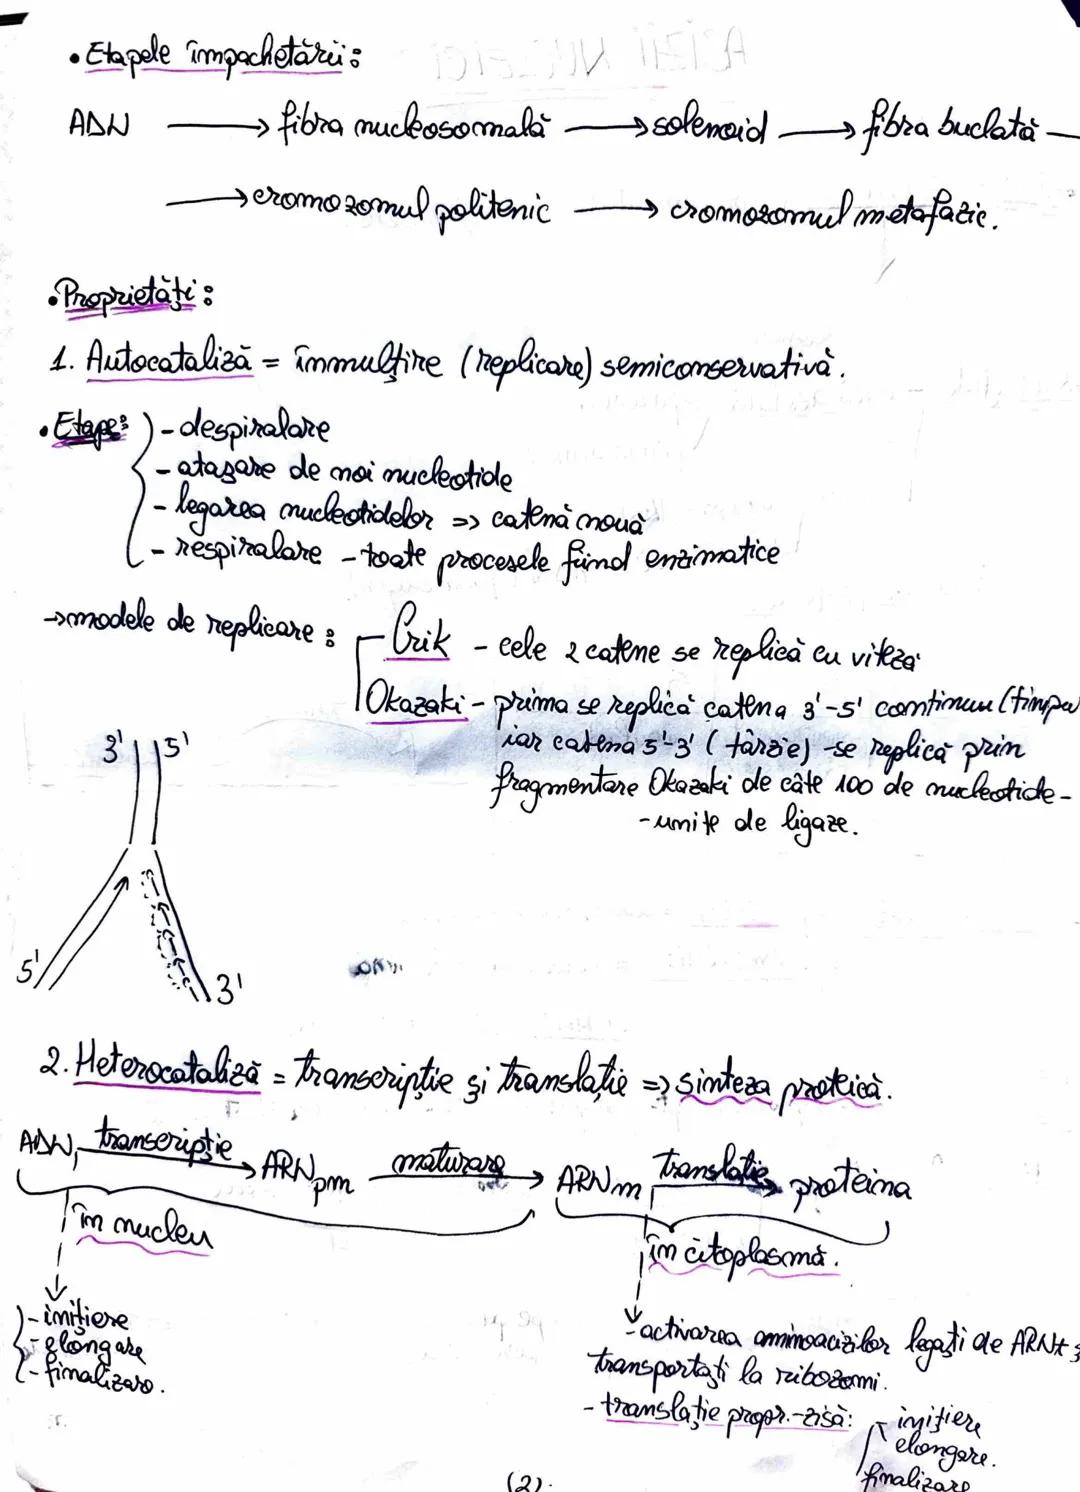 • Etapele împachetării:
ADN → fibra nucleosomală → solenoid → fibra buclată
→ cromozomul politenic → cromozomul metafazic.
• Proprietăți:
1. Autocataliză = înmulțire (replicare) semiconservativă.
• Etape: - despiralare
- atașare de noi nucleotide
- legarea nucleotidelor => catenă nouă
- respiralare - toate procesele fiind enzimatice
→ modele de replicare: Crik - cele 2 catene se replică cu viteză
Okazaki - prima se replică catena 3'-5' continuu
iar catena 5'-3' (târzie) - se replică prin
fragmentare Okazaki de câte 100 de nucleotide -
- unite de ligaze.
3' 5'
5' 3'
2. Heterocataliză = transcripție și translație => sinteza proteică.
ADN transcripție → ARNpm maturare → ARNm translație → proteina
în nucleu
în citoplasmă.
- inițiere
- elongare
- finalizare.
- activarea aminoacizilor legați de ARNt și
transportați la ribozomi.
- translație propr.-zisă: - inițiere
elongare.
finalizare
(2).